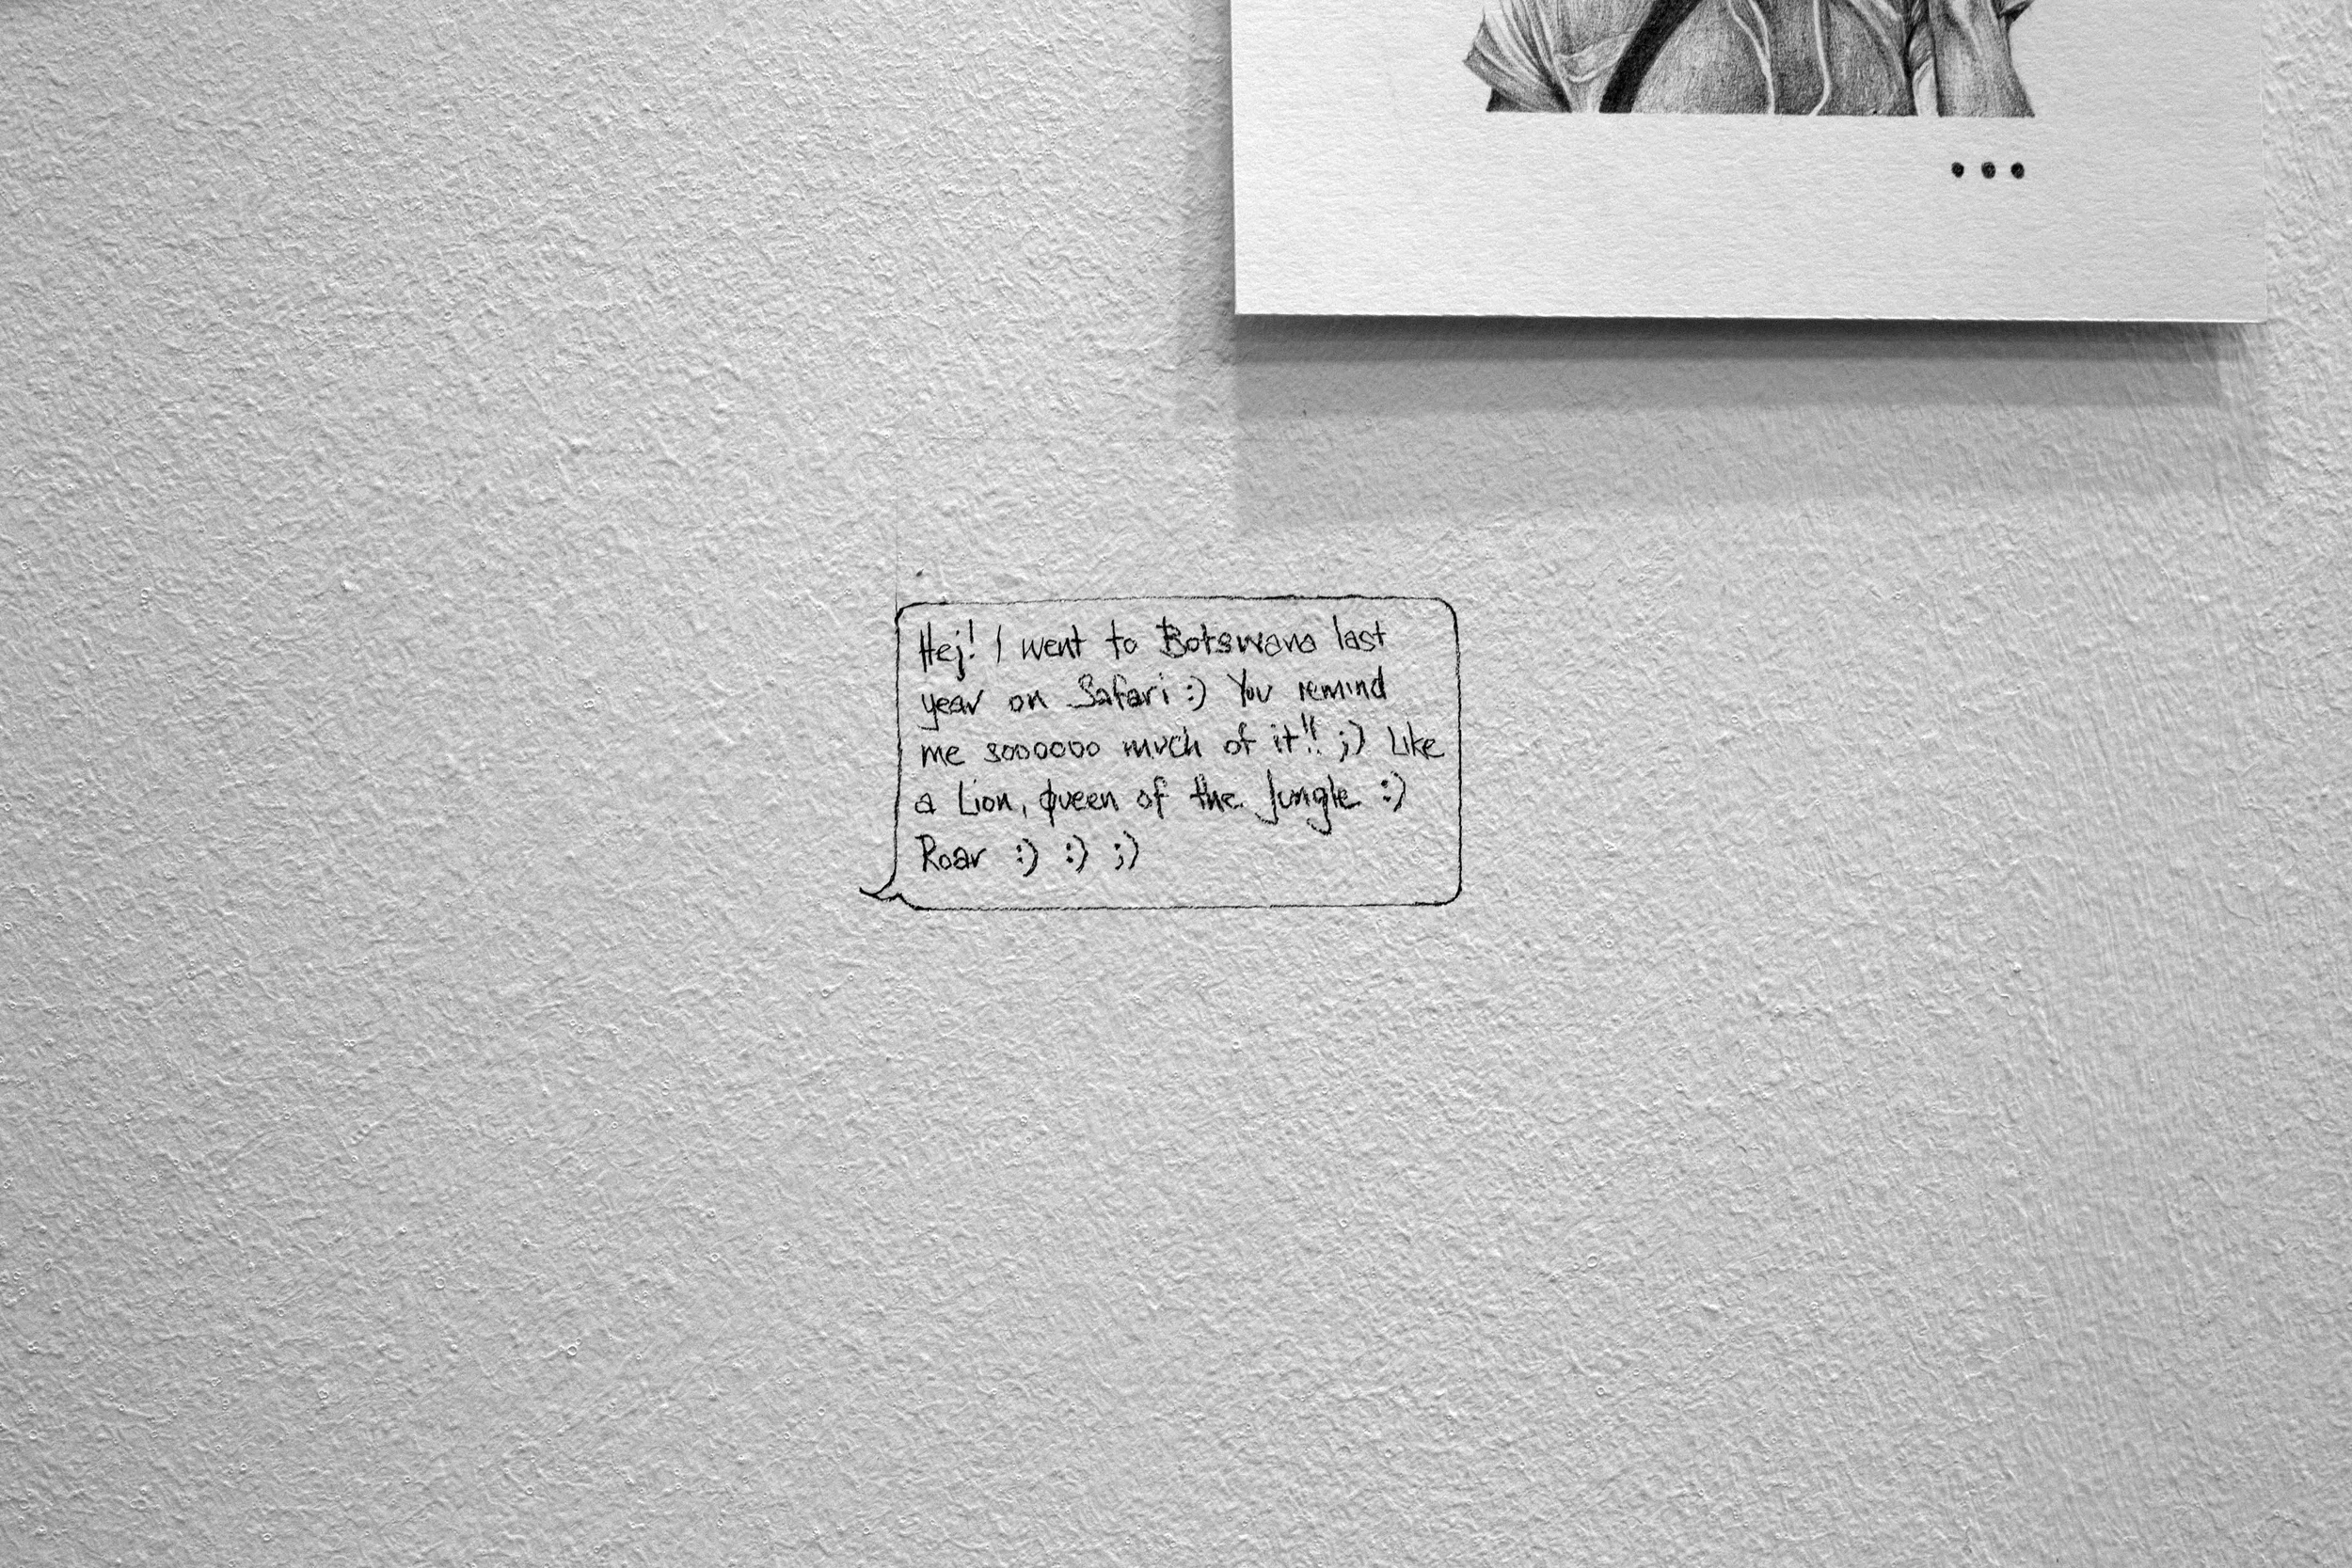 •••
Hej! I went to Botswana last
year on Safari :) You remind
me soooooo much of it!! ;) Like
a Lion, Queen of the Jungle :)
Roar :) :) ;)